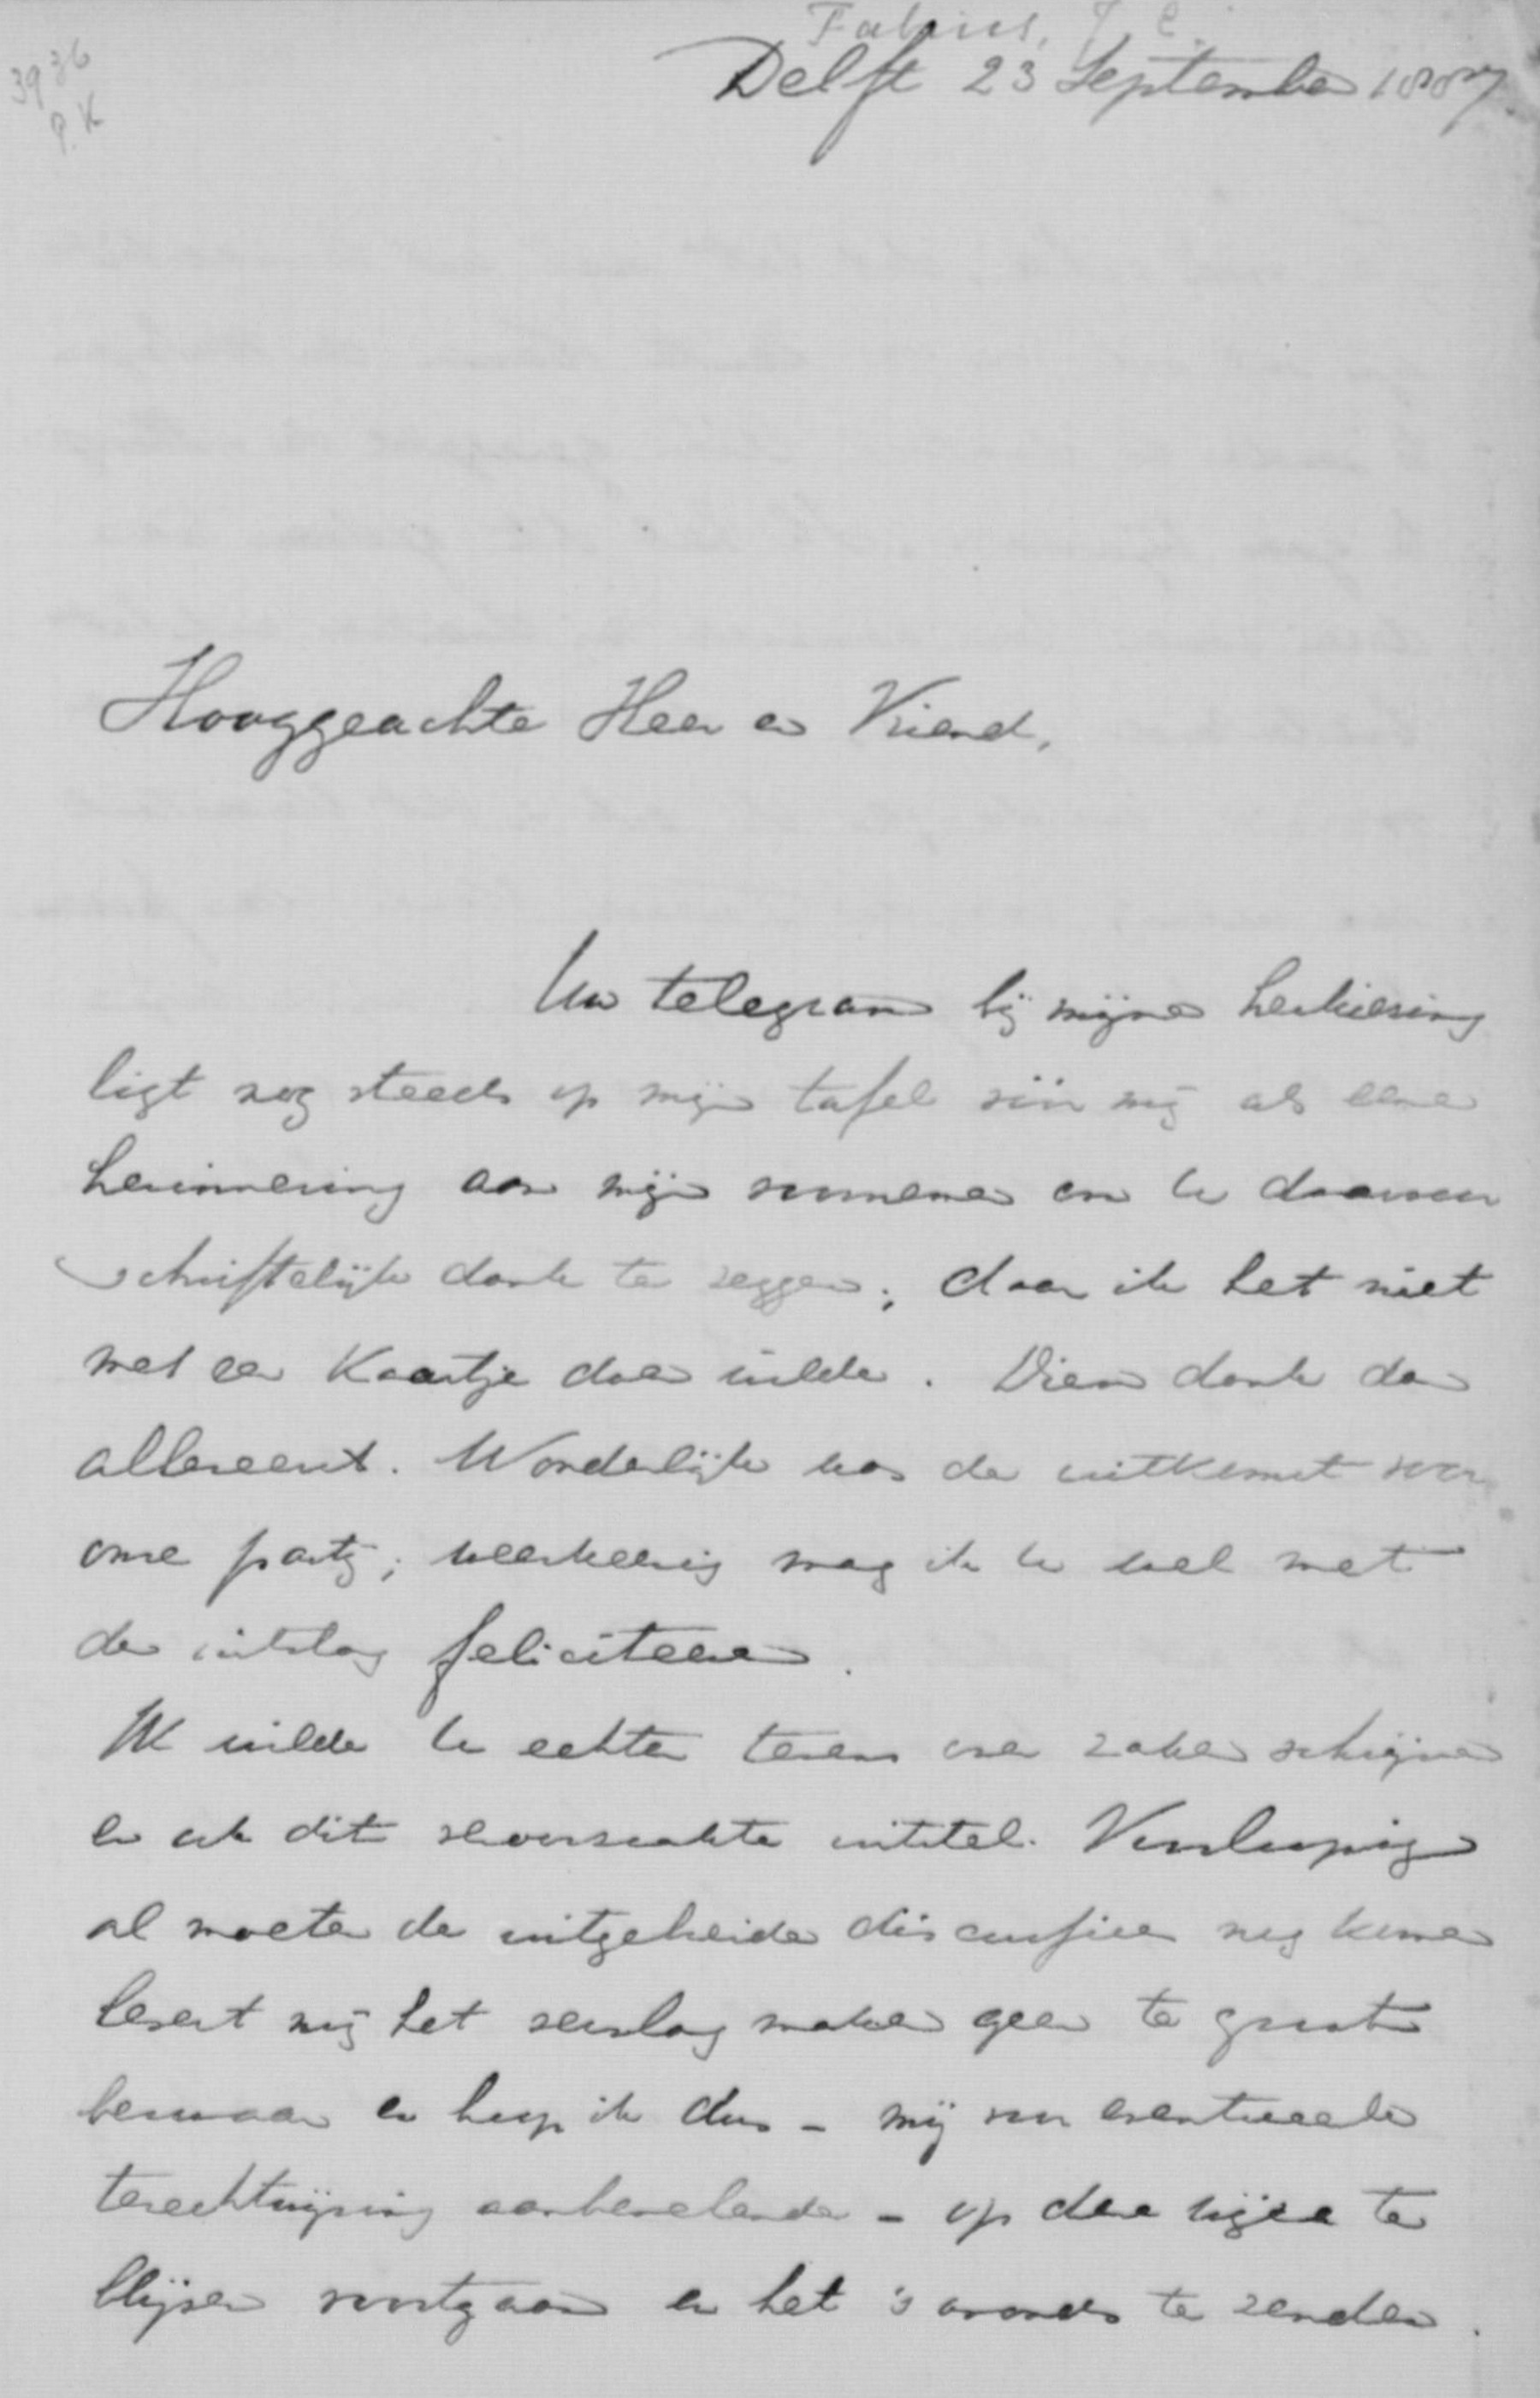 Fabius, J. C.
3936
P. K
Delft 23 September 1887.
Hooggeachte Heer en Vriend,
Uw telegram bij mijne herkiesing
ligt nog steeds op mijn tafel vóór mij als eene
herinnering aan mijn voornemen om U daarvoor
schriftelijk dank te zeggen; daar ik het niet
met een Kaartje doen wilde. Dien dank dan
allereerst. Wonderlijk was de uitkomst voor
onze partij; weerkeerig mag ik U wel met
den uitslag feliciteeren.
Ik wilde U echter tevens over zaken schrijven
en ook dit veroorzaakte uitstel. Voorloopig
al moeten de uitgebreide discussieen nog komen
levert mij het verslag maken geen te groote
bezwaren en hoop ik dus - mij voor eventueele
terechtwijzing aanbevelende - op deze wijze te
blijven voortgaan en het 's avonds te zenden.